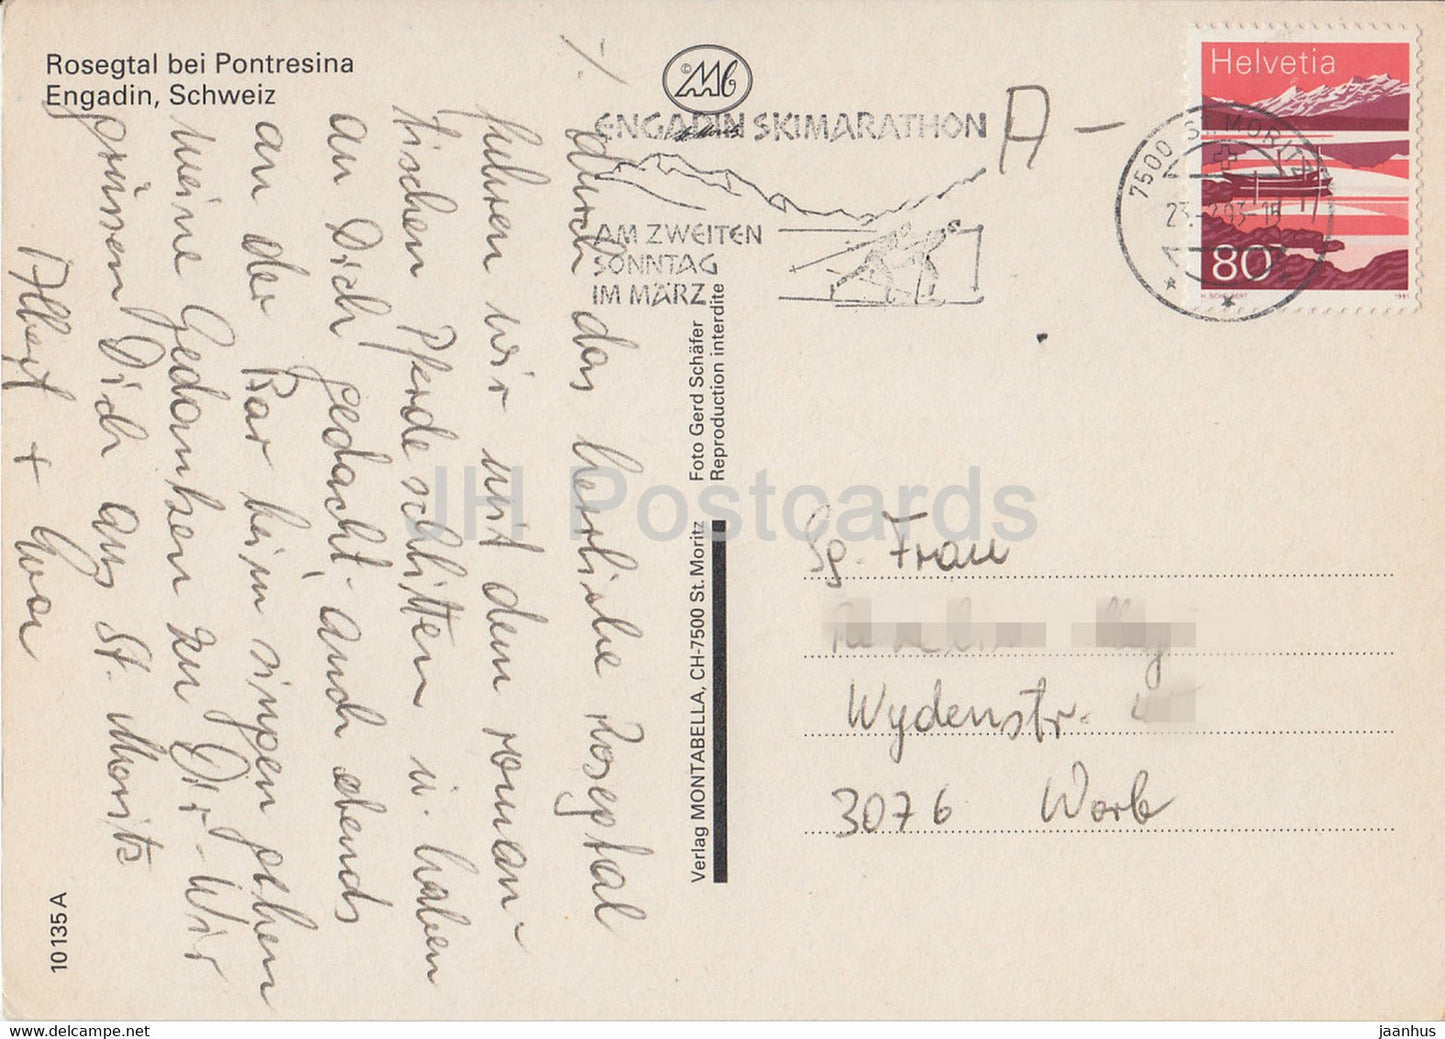 Rosegtal bei Pontresina
Engadin, Schweiz
©Mb
ENGADIN SKIMARATHON
AM ZWEITEN
SONNTAG
IM MÄRZ
A-
7500 ST. MORITZ
Helvetia
80
H. SCHELBERT
1991
durch das herrliche Rosegtal
fuhren wir mit dem roman-
tischen Pferdeschlitten u. haben
an Dich gedacht. Auch abends
an der Bar beim singen gehen
meine Gedanken zu Dir. Wir
grüssen Dich aus St. Moritz
Albert +
10135 A
Verlag MONTABELLA, CH-7500 St. Moritz Foto Gerd Schäfer
Reproduction interdite
JH Postcards
Sg. Frau
Wydenstr.
3076 Worb
www.delcampe.net
jaanhus